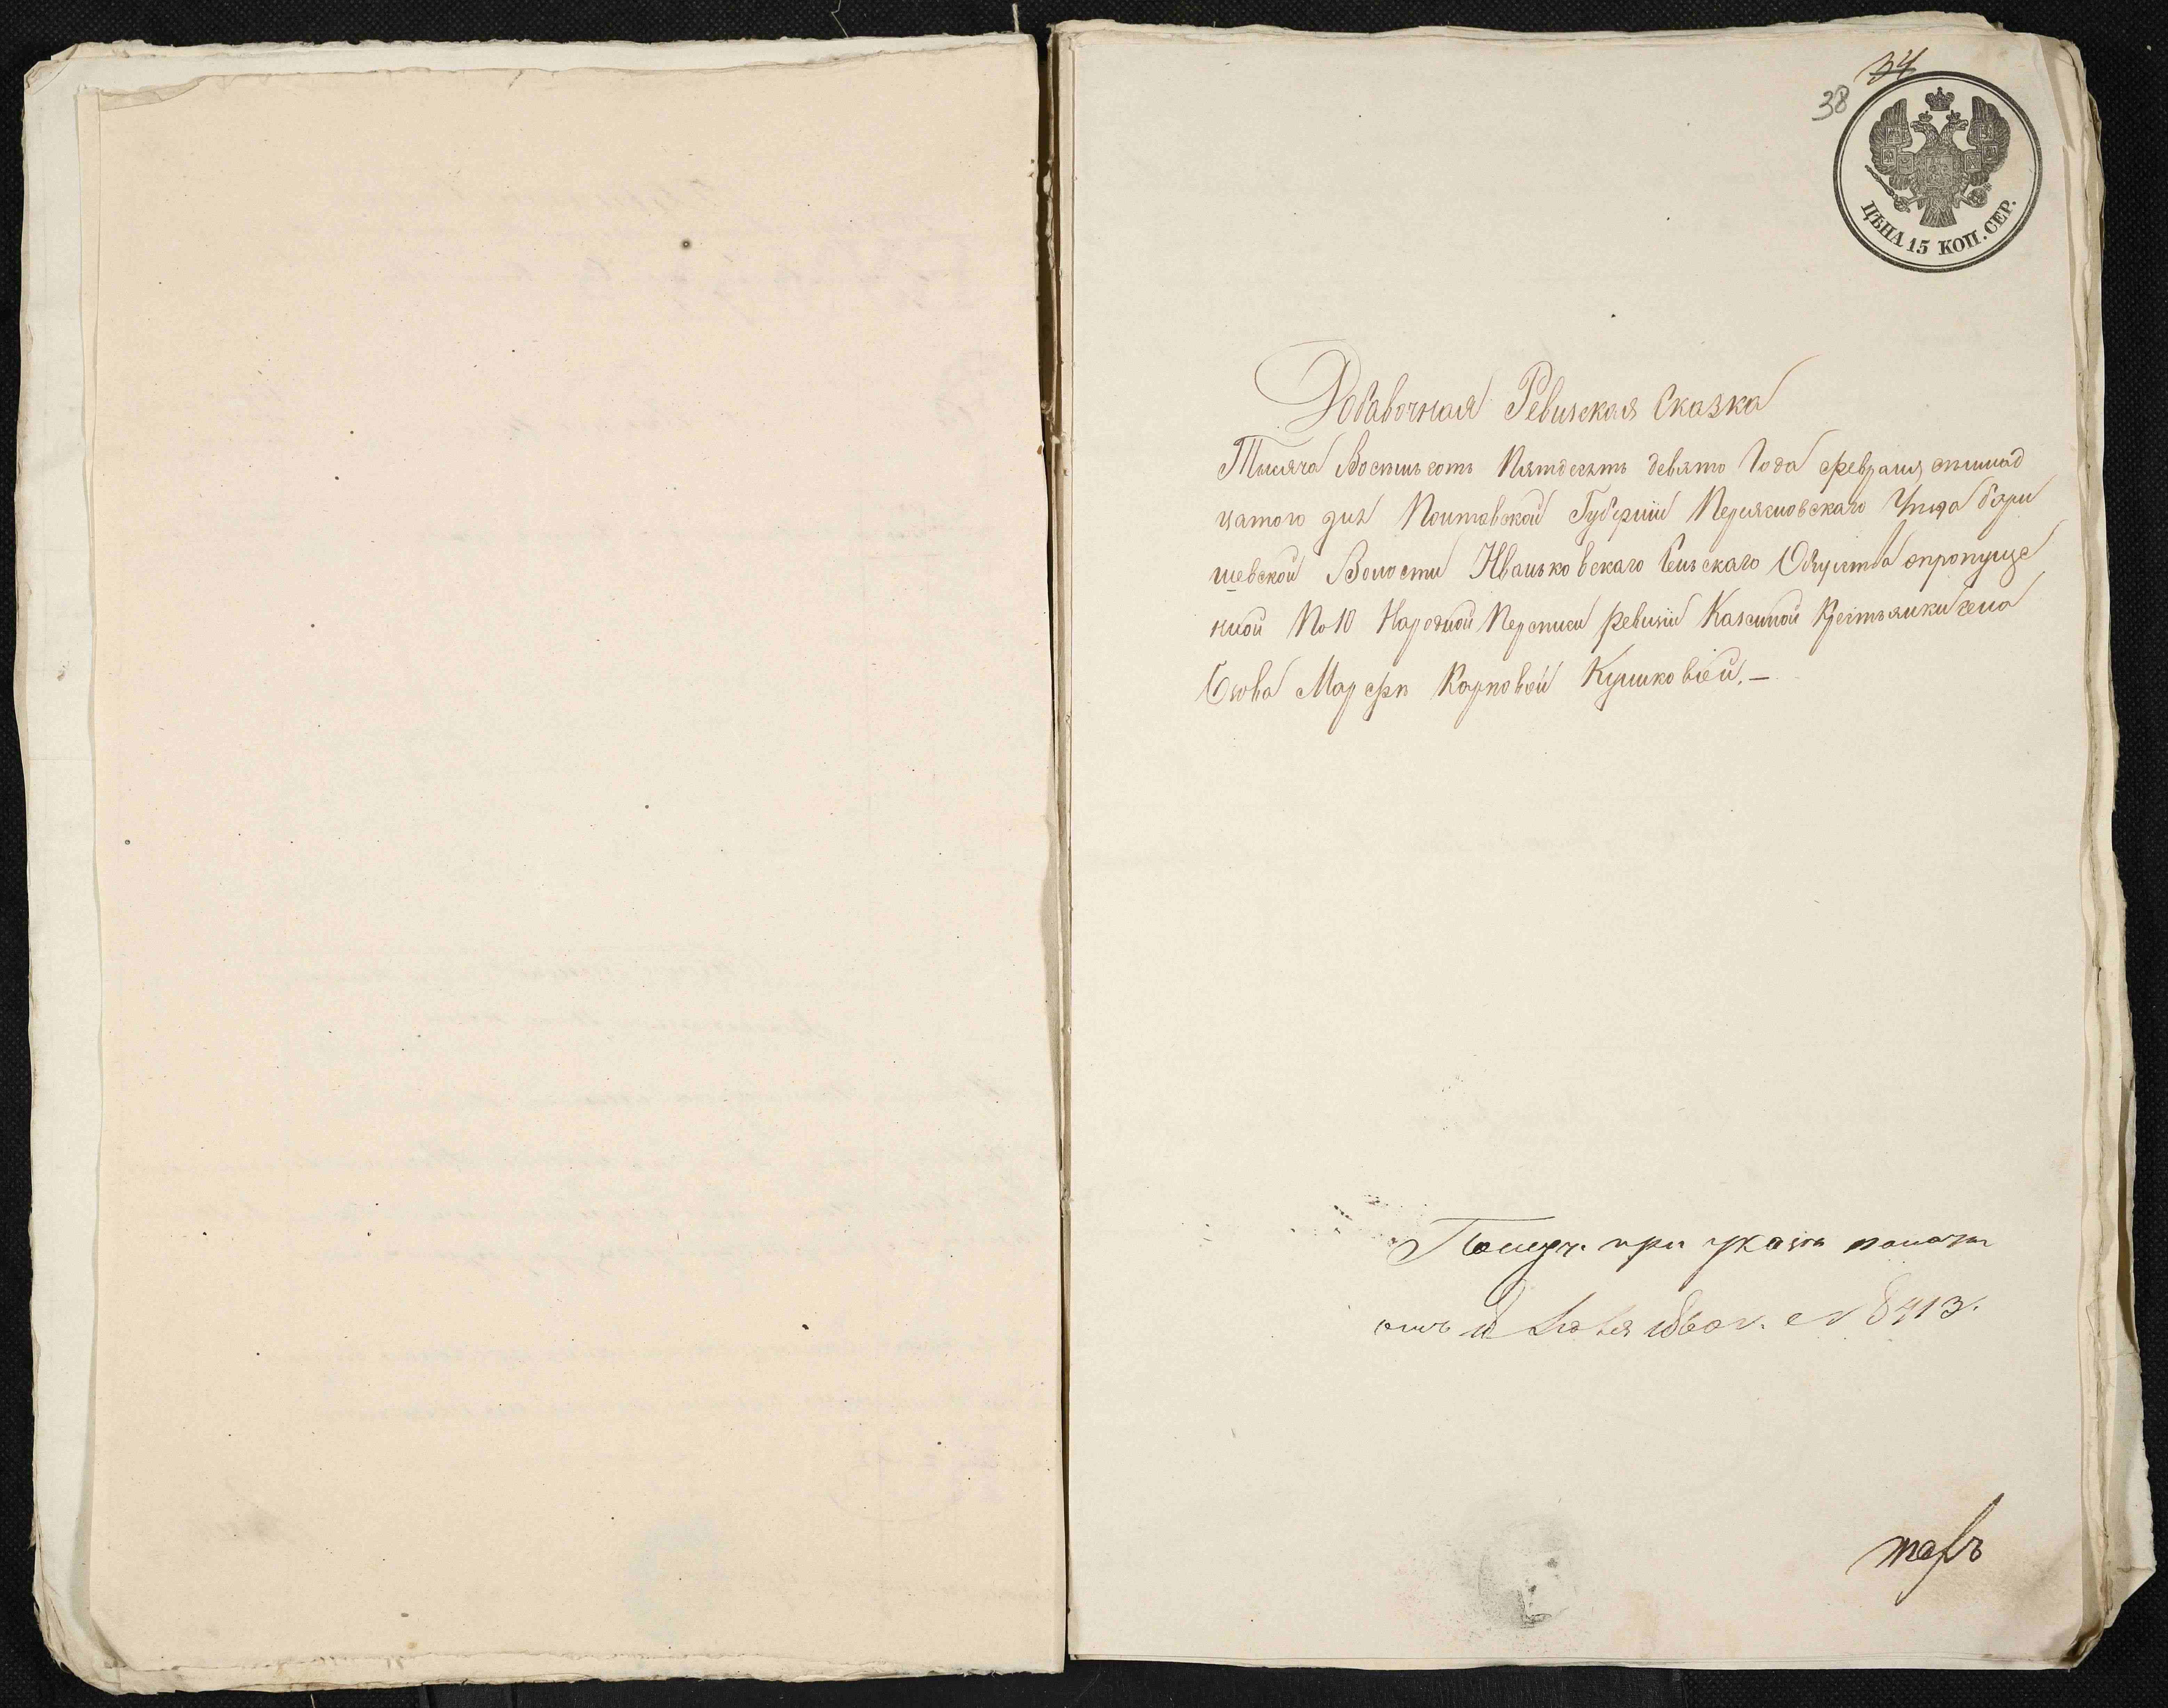 34
38
ЦѢНА 15 КОП. СЕР.
Добавочная Ревизская Сказка
Тысяча Восемьсотъ Пятдесятъ девято Года февраля
цатого дня Полтавской Губерніи Переясловскаго Уѣзда Бари
шевской Волости Иваньковскаго Сельскаго Общества опропуще
нной По 10 Народной Переписи ревизіи Казенной Крестьянки
Марфи Карповой Кушковіей. —
при указѣ палаты
отъ 1860 г. № 8413.